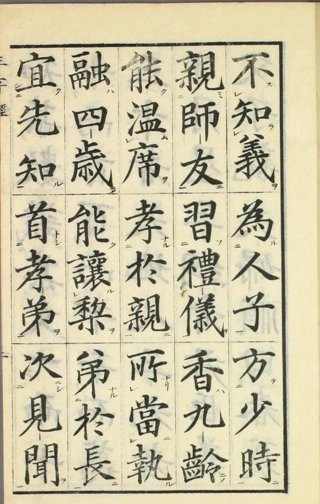 不知義為人子方少時
親師友習禮儀香九齡
能溫席孝於親所當執
融四歲能讓梨弟於長
宜先知首孝弟次見聞